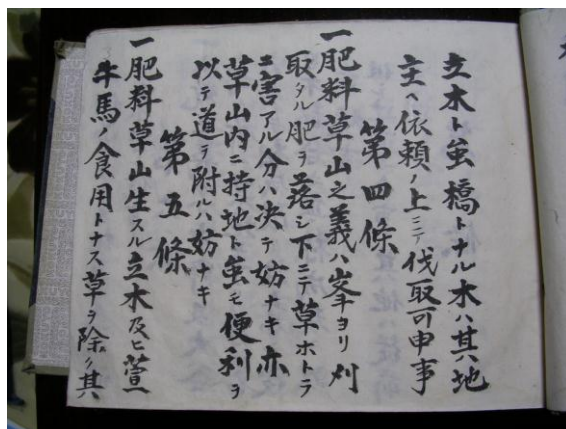 立木ト虽橋トナル木ハ其地
主ヘ依頼ノ上ニテ伐取可申事
第四條
一肥料草山之義ハ峯ヨリ刈
取タル肥ヲ落シ下ニテ草ホトラ
ニ害アル分ハ决テ妨ナキ亦
草山内ニ持地ト虽モ便利ヲ
以テ道ヲ附ルハ妨ナキ
第五條
一肥料草山生スル立木及ヒ萱
牛馬ノ食用トナス草ヲ除ク其